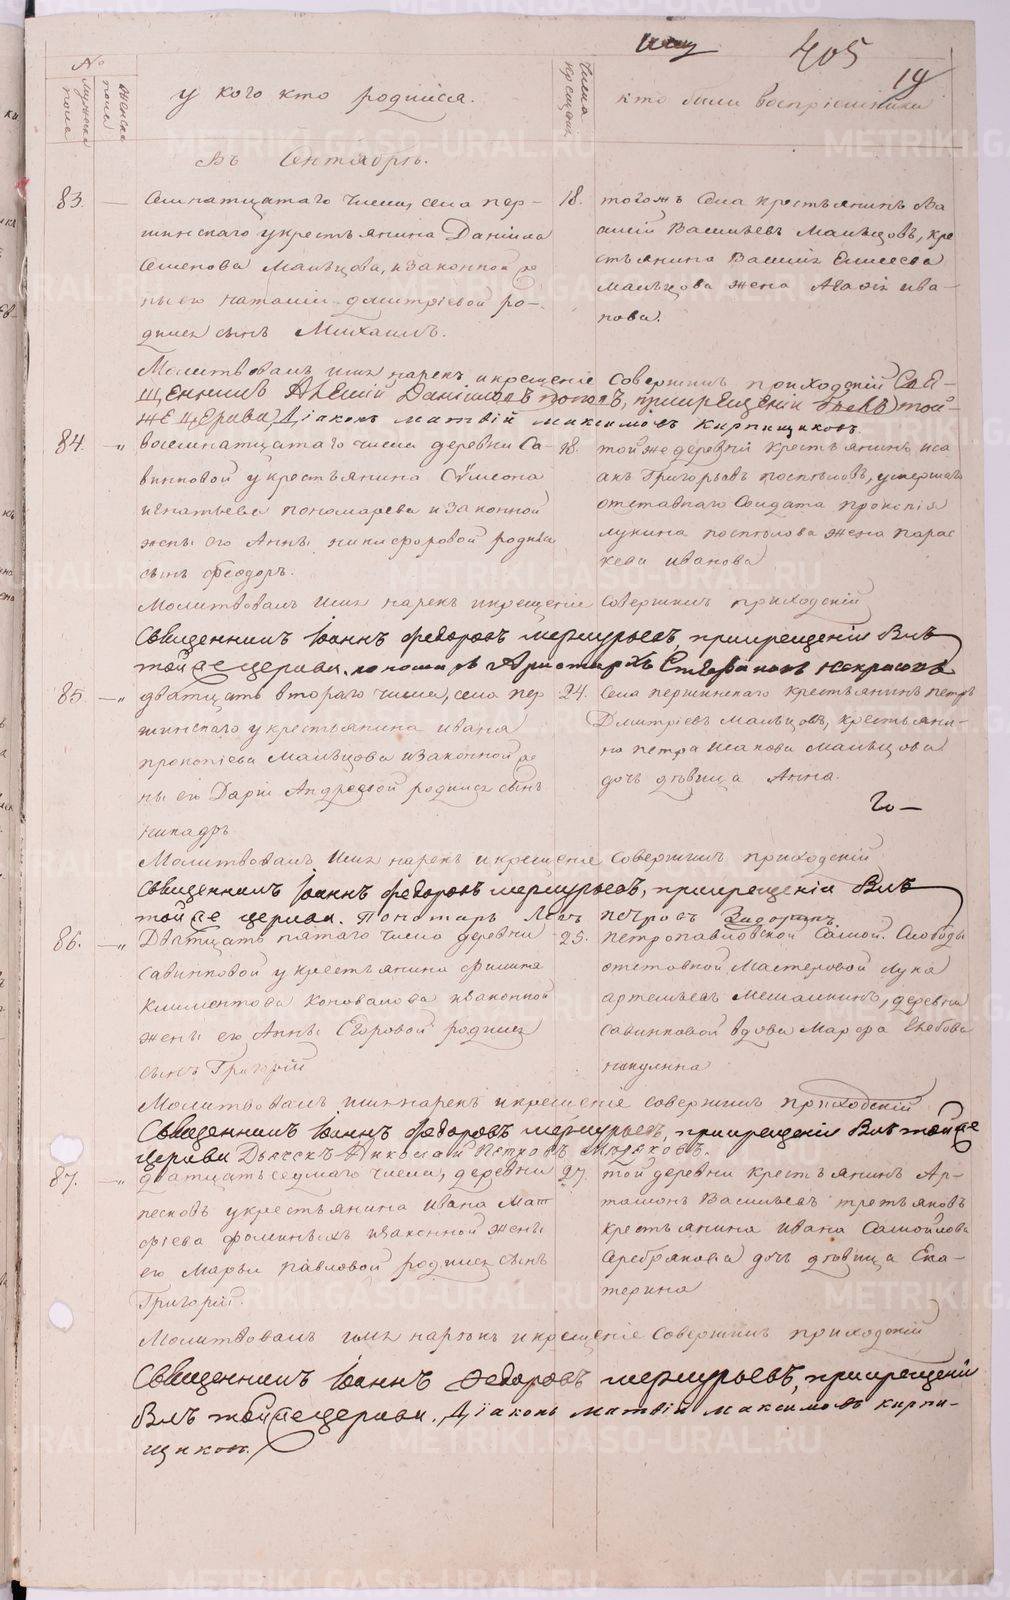 405
19
№
Мужеска пола
Женска пола
У кого кто родился.
Число крещения
кто были воспріемники
Въ Сентябрѣ.
83. — Семнатцатаго числа, села Пер-
шинскаго у крестьянина Даніила
Семенова Мальцова, и законной же
ны его Наталіи Дмитріевой ро-
дился сынъ Михаилъ.
18. тогожъ села крестьянинъ Ва
силій Васильевъ Мальцовъ, кре
стьянина Василія Елисеева
Мальцова жена Авдотія Ива-
нова.
Молитвовалъ имя нарекъ и крещеніе совершилъ приходскій Свя-
щенникъ Алексій Даніиловъ Поповъ, при крещеніи былъ той-
же церкви Діаконъ Матвій Максимовъ Кирпищиковъ
84. — " восемнатцатаго числа деревни Са-
винковой у крестьянина Сѵмеона
Игнатьева Пономарева и законной
жены его Анны Никифоровой родился
сынъ Феодоръ.
18. той же деревни крестьянинъ Иса
акъ Григорьевъ Поспѣловъ, умершаго
отставнаго солдата Прокопія
Лукина Поспѣлова жена Парас
кева Иванова
Молитвовалъ имя нарекъ и крещеніе совершилъ приходскій
Священникъ Іоаннъ Федоровъ Меркурьевъ, при крещеніи былъ
той же церкви. пономарь Аристархъ Стефановъ Некрасовъ
85. — " дватцать втораго числа, села Пер
шинскаго у крестьянина Ивана
Прокопіева Мальцова и законной же
ны его Даріи Андреевой родился сынъ
Никандръ
24. Села Першинскаго крестьянинъ Петръ
Дмитріевъ Мальцовъ, крестьяни-
на Петра Исакова Мальцова
дочь дѣвица Анна.
Молитвовалъ имя нарекъ и крещеніе совершилъ приходскій
Священникъ Іоаннъ Федоровъ Меркурьевъ, при крещеніи былъ
той же церкви. Пономарь Левъ Петровъ Задоринъ
86. — " Дватцать пятаго числа деревни
Савинковой у крестьянина Филипа
Климентова Коновалова и законной
жены его Анны Егоровой родился
сынъ Григорій
25. Петропавловской самой. Слободы
отставной мастеровой Лука
Артемьевъ Мешалкинъ, деревни
Савинковой вдова Марфа Глебова
Никулина
Молитвовалъ имя нарекъ и крещеніе совершилъ приходскій
Священникъ Іоаннъ Федоровъ Меркурьевъ, при крещеніи былъ той же
церкви Дьячекъ Николай Петровъ
87. — " дватцать седмаго числа, деревни
Песковъ у крестьянина Ивана Мат
фіева Фоминыхъ и законной жены
его Марьи Павловой родился сынъ
Григорій.
27. той деревни крестьянинъ Ар-
тамонъ Васильевъ Третьяковъ
крестьянина Ивана Самойлова
Серебрякова дочь дѣвица Ека-
терина
Молитвовалъ имя нарекъ и крещеніе совершилъ приходскій
Священникъ Іоаннъ Федоровъ Меркурьевъ, при крещеніи
былъ той же церкви. Діаконъ Матвій Максимовъ Кирпи-
щиковъ.